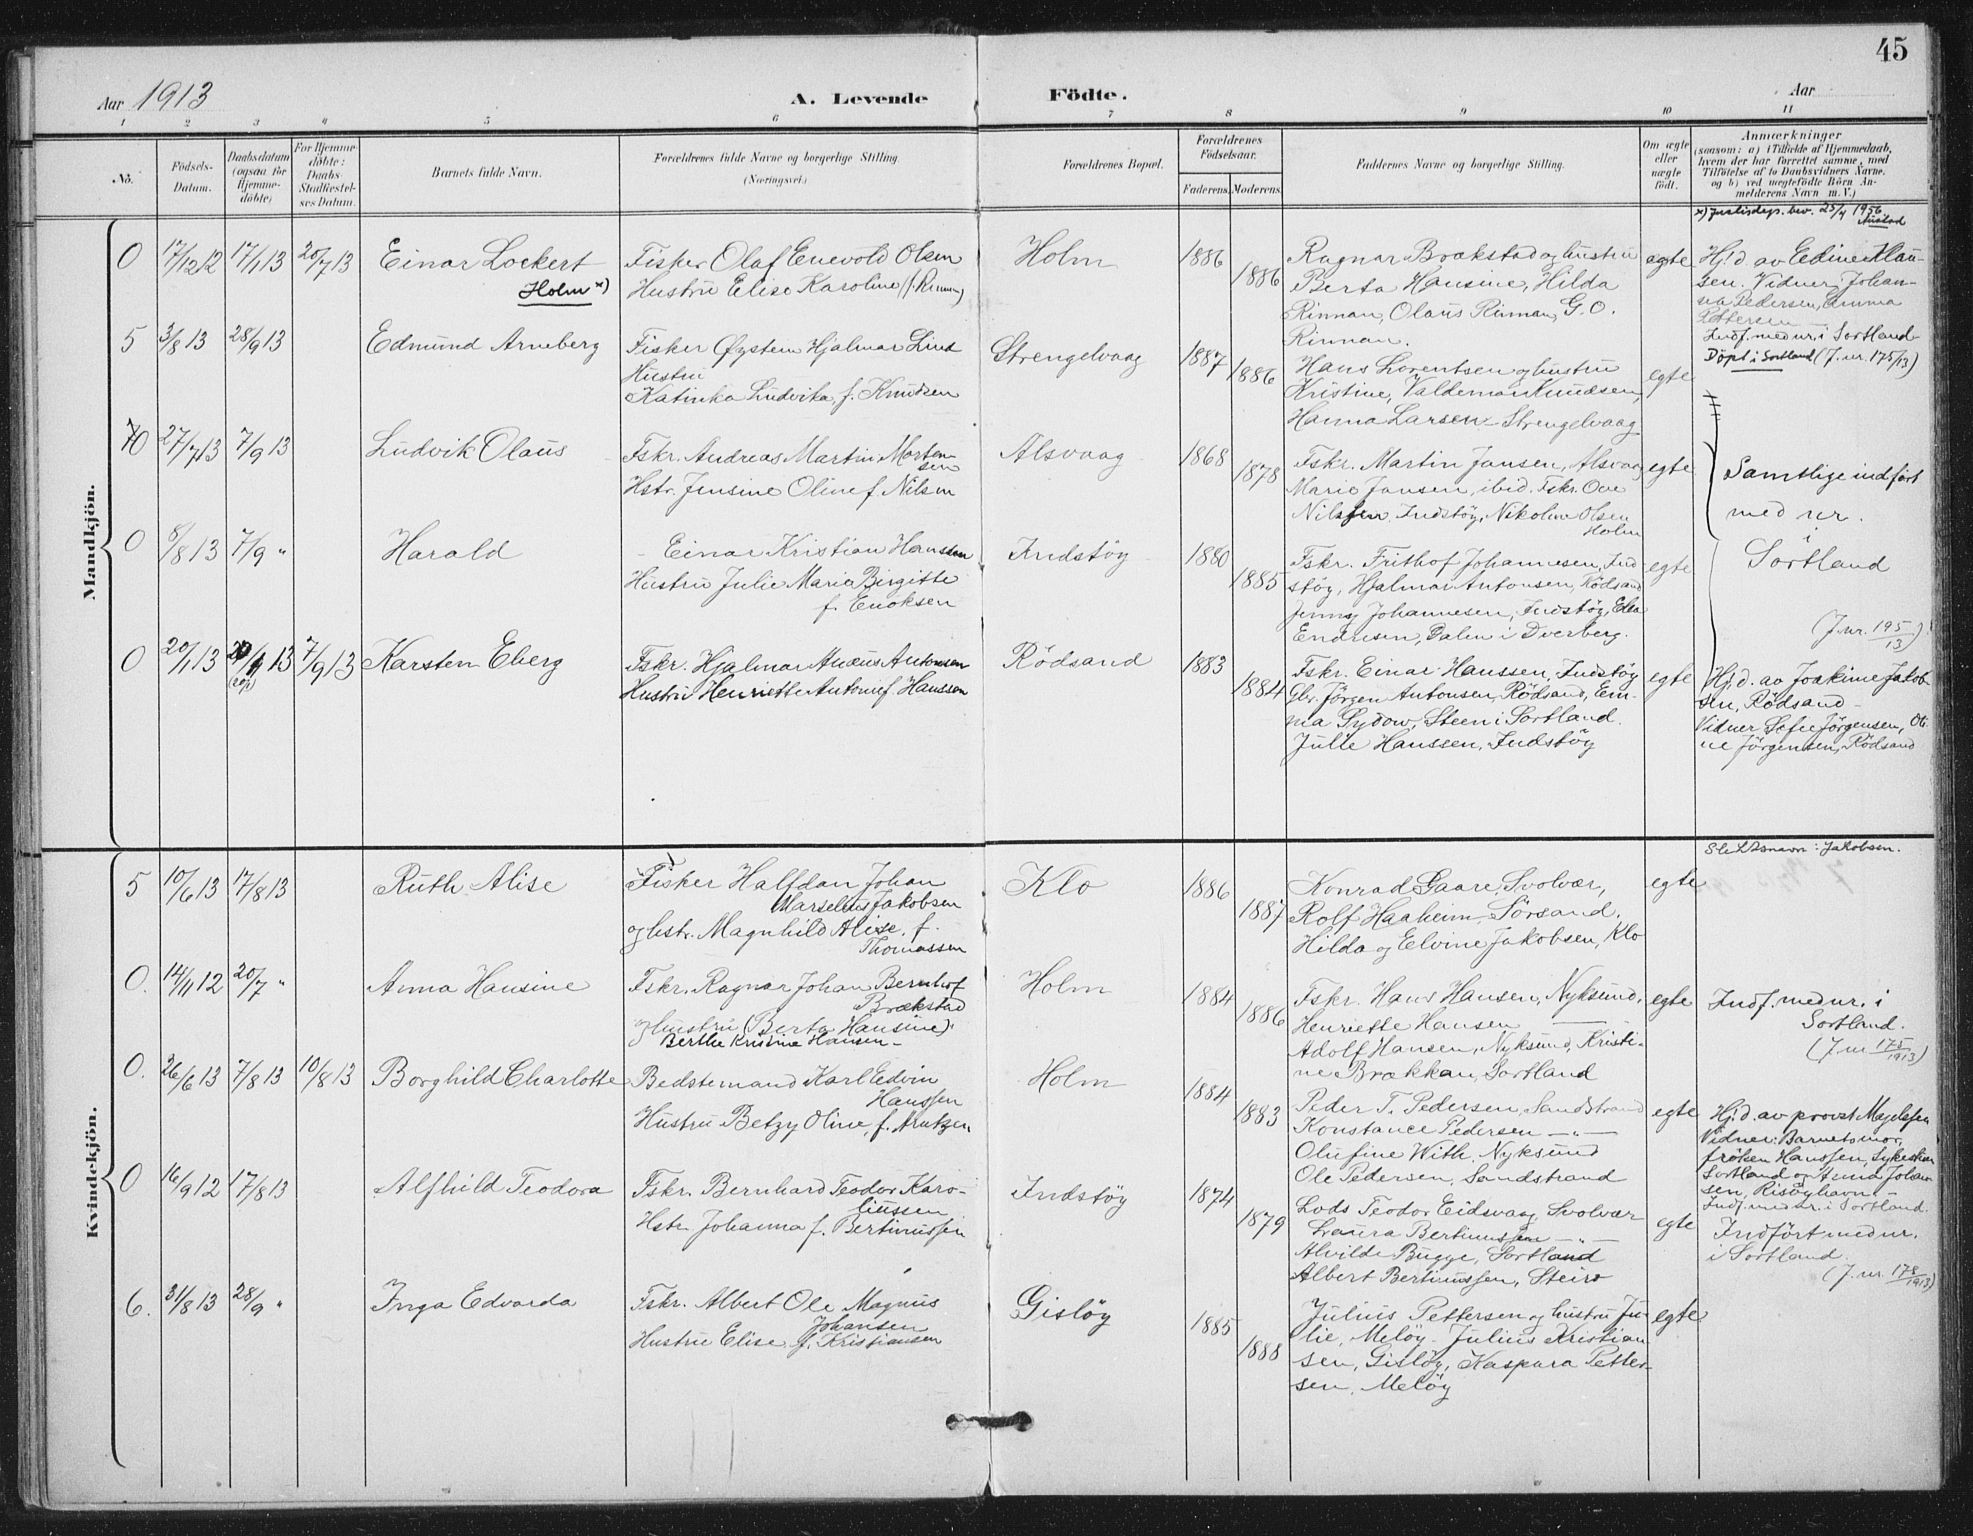 45
Aar 1913
A. Levende Födte.
Aar
1 2 3 4 5 6 7 8 9 10 11
No.
Födsels-Datum.
Daabsdatum (ogsaa for Hjemme-döbte)
For Hjemme-döbte: Daabs-Stadfæstel-ses Datum.
Barnets fulde Navn.
Forældrenes fulde Navne og borgerlige Stilling.
(Næringsvei.)
Forældrenes Bopæl.
Forældrenes Födselsaar.
Faderens. Moderens.
Faddernes Navne og borgerlige Stilling.
Om ægte eller uægte födt.
Anmærkninger
(saasom: a) i Tilfælde af Hjemmedaab,
hvem der har forrettet samme, med
Tilföielse af to Daabsvidners Navne,
og b) ved uægtefödte Börn An-
melderens Navn m. V.)
x) Justisdeps. bev. 25/4 1956
Mandkjön.
0 17/12 12 17/1 13 20/7 13 Einar Lockert
Holm x)
Fisker Olaf Enevold Olsen
Hustru Elise Karoline (f. Rinnan)
Holm 1886 1886
Ragnar Brækstad og hustru
Berta Hansine, Hilda
Rinnan, Olaus Rinnan, G. O.
Rinnan.
ægte
Hj.d. av Edine Klau-
sen. Vidner: Johan-
na Pedersen, Emma
Pettersen
5 3/8 13 28/9 13 Edmund Arneberg
Fisker Øystein Hjalmar Lind
Hustru
Katinka Ludvika, f. Knudsen
Strengelvaag 1887 1886
Hans Lorentsen og hustru
Kristine, Valdemar Knudsen,
Hanna Larsen - Strengelvaag
egte
Indf. med nr. i Sortland -
Döpt i Sortland (J. nr. 175/13)
70 27/7 13 7/9 13 Ludvik Olaus
Fskr. Andreas Martin Morten-
sen
Hstr. Jensine Oline f. Nilsen
Alsvaag 1868 1878
Fskr. Martin Jansen, Alsvaag
Marie Jansen, ibid. Fskr. Ove
Nilssen, Indstöy, Nikoline Olsen
Holm
egte
Samtlige indfört
med nr.
i
Sortland
(J. nr. 195/13)
0 8/8 13 7/9 " Harald
- Einar Kristian Hanssen
Hustru Julie Marie Birgitte
f. Enoksen
Indstöy 1880 1885
Fskr. Frithof Johannesen, Ind-
stöy, Hjalmar Antonsen, Rödsand
Jenny Johannesen, Indstöy, Elea
Endresen, Dalen i Dverberg.
egte
0 20/1 13 7/9 13 Karsten Eberg
Fskr. Hjalmar Anæus Antonsen
Hustru Henriette Antonie f. Hanssen
Rödsand 1883 1884
Fskr. Einar Hanssen, Indstöy
Gbr. Jörgen Antonsen, Rödsand, Em-
ma Sydow, Steen i Sortland.
Julie Hanssen, Indstöy
egte
Hj.d. av Joakime Jakob-
sen, Rödsand -
Vidner Sofie Jörgensen, Oli-
ne Jörgensen, Rödsand
Kvindekjön.
5 10/6 13 17/8 13 Ruth Alise
Fisker Halfdan Johan
Marselius Jakobsen
og hstr. Magnhild Alise, f.
Thomassen
Klo 1886 1887
Konrad Gaare, Svolvær,
Rolf Haaheim, Sörsand.
Hilda og Elvine Jakobsen, Klo
egte
Slektsnavn: Jakobsen.
0. 14/11 12 20/7 " Anna Hansine
Fskr. Ragnar Johan Bernhof
Brækstad
og hustru (Berta Hansine).
Berthe Kristine Hansen -
Holm 1884 1886
Fskr. Hans Hansen, Nyksund,
Henriette Hansen —
Adolf Hansen, Nyksund, Kristi-
ne Brækkan, Sortland
egte
Indf. med nr. i
Sortland.
(J. nr 175/1913)
0. 26/6 13 7/8 13 10/8 13 Borghild Charlotte
Bedstemand Karl Edvin
Hanssen
Hustru Betzy Oline, f. Arntzen
Holm 1884 1883
Peder T. Pedersen, Sandstrand
Konstance Pedersen — " —
Olufine With, Nyksund
Ole Pedersen, Sandstrand
egte
Hj.d. av provst Magelssen
Vidner: Barnets mor,
fröken Hanssen, Sykeshus
Sortland og Anna Johan-
sen, Risöyhavn -
Indf. med nr. i Sortland.
0 16/9 12 17/8 13 Alfhild Teodora
Fskr. Bernhard Teodor Karo-
liussen
Hstr. Johanna f. Bertinussen
Indstöy 1874 1879
Lods Teodor Eidsvaag, Svolvær
Laura Bertinussen — " —
Alvilde Bugge, Sortland
Albert Bertinussen, Steiro
egte
Indfört med nr.
i Sortland.
(J. nr. 178/1913)
6. 31/8 13 28/9 " Inga Edvarda
Fskr. Albert Ole Magnus
Johansen
Hustru Elise f. Kristiansen
Gislöy 1885 1888
Julius Pettersen og hustru Ju-
lie, Melöy. Julius Kristian-
sen, Gislöy, Kaspara Petter-
sen, Melöy
egte